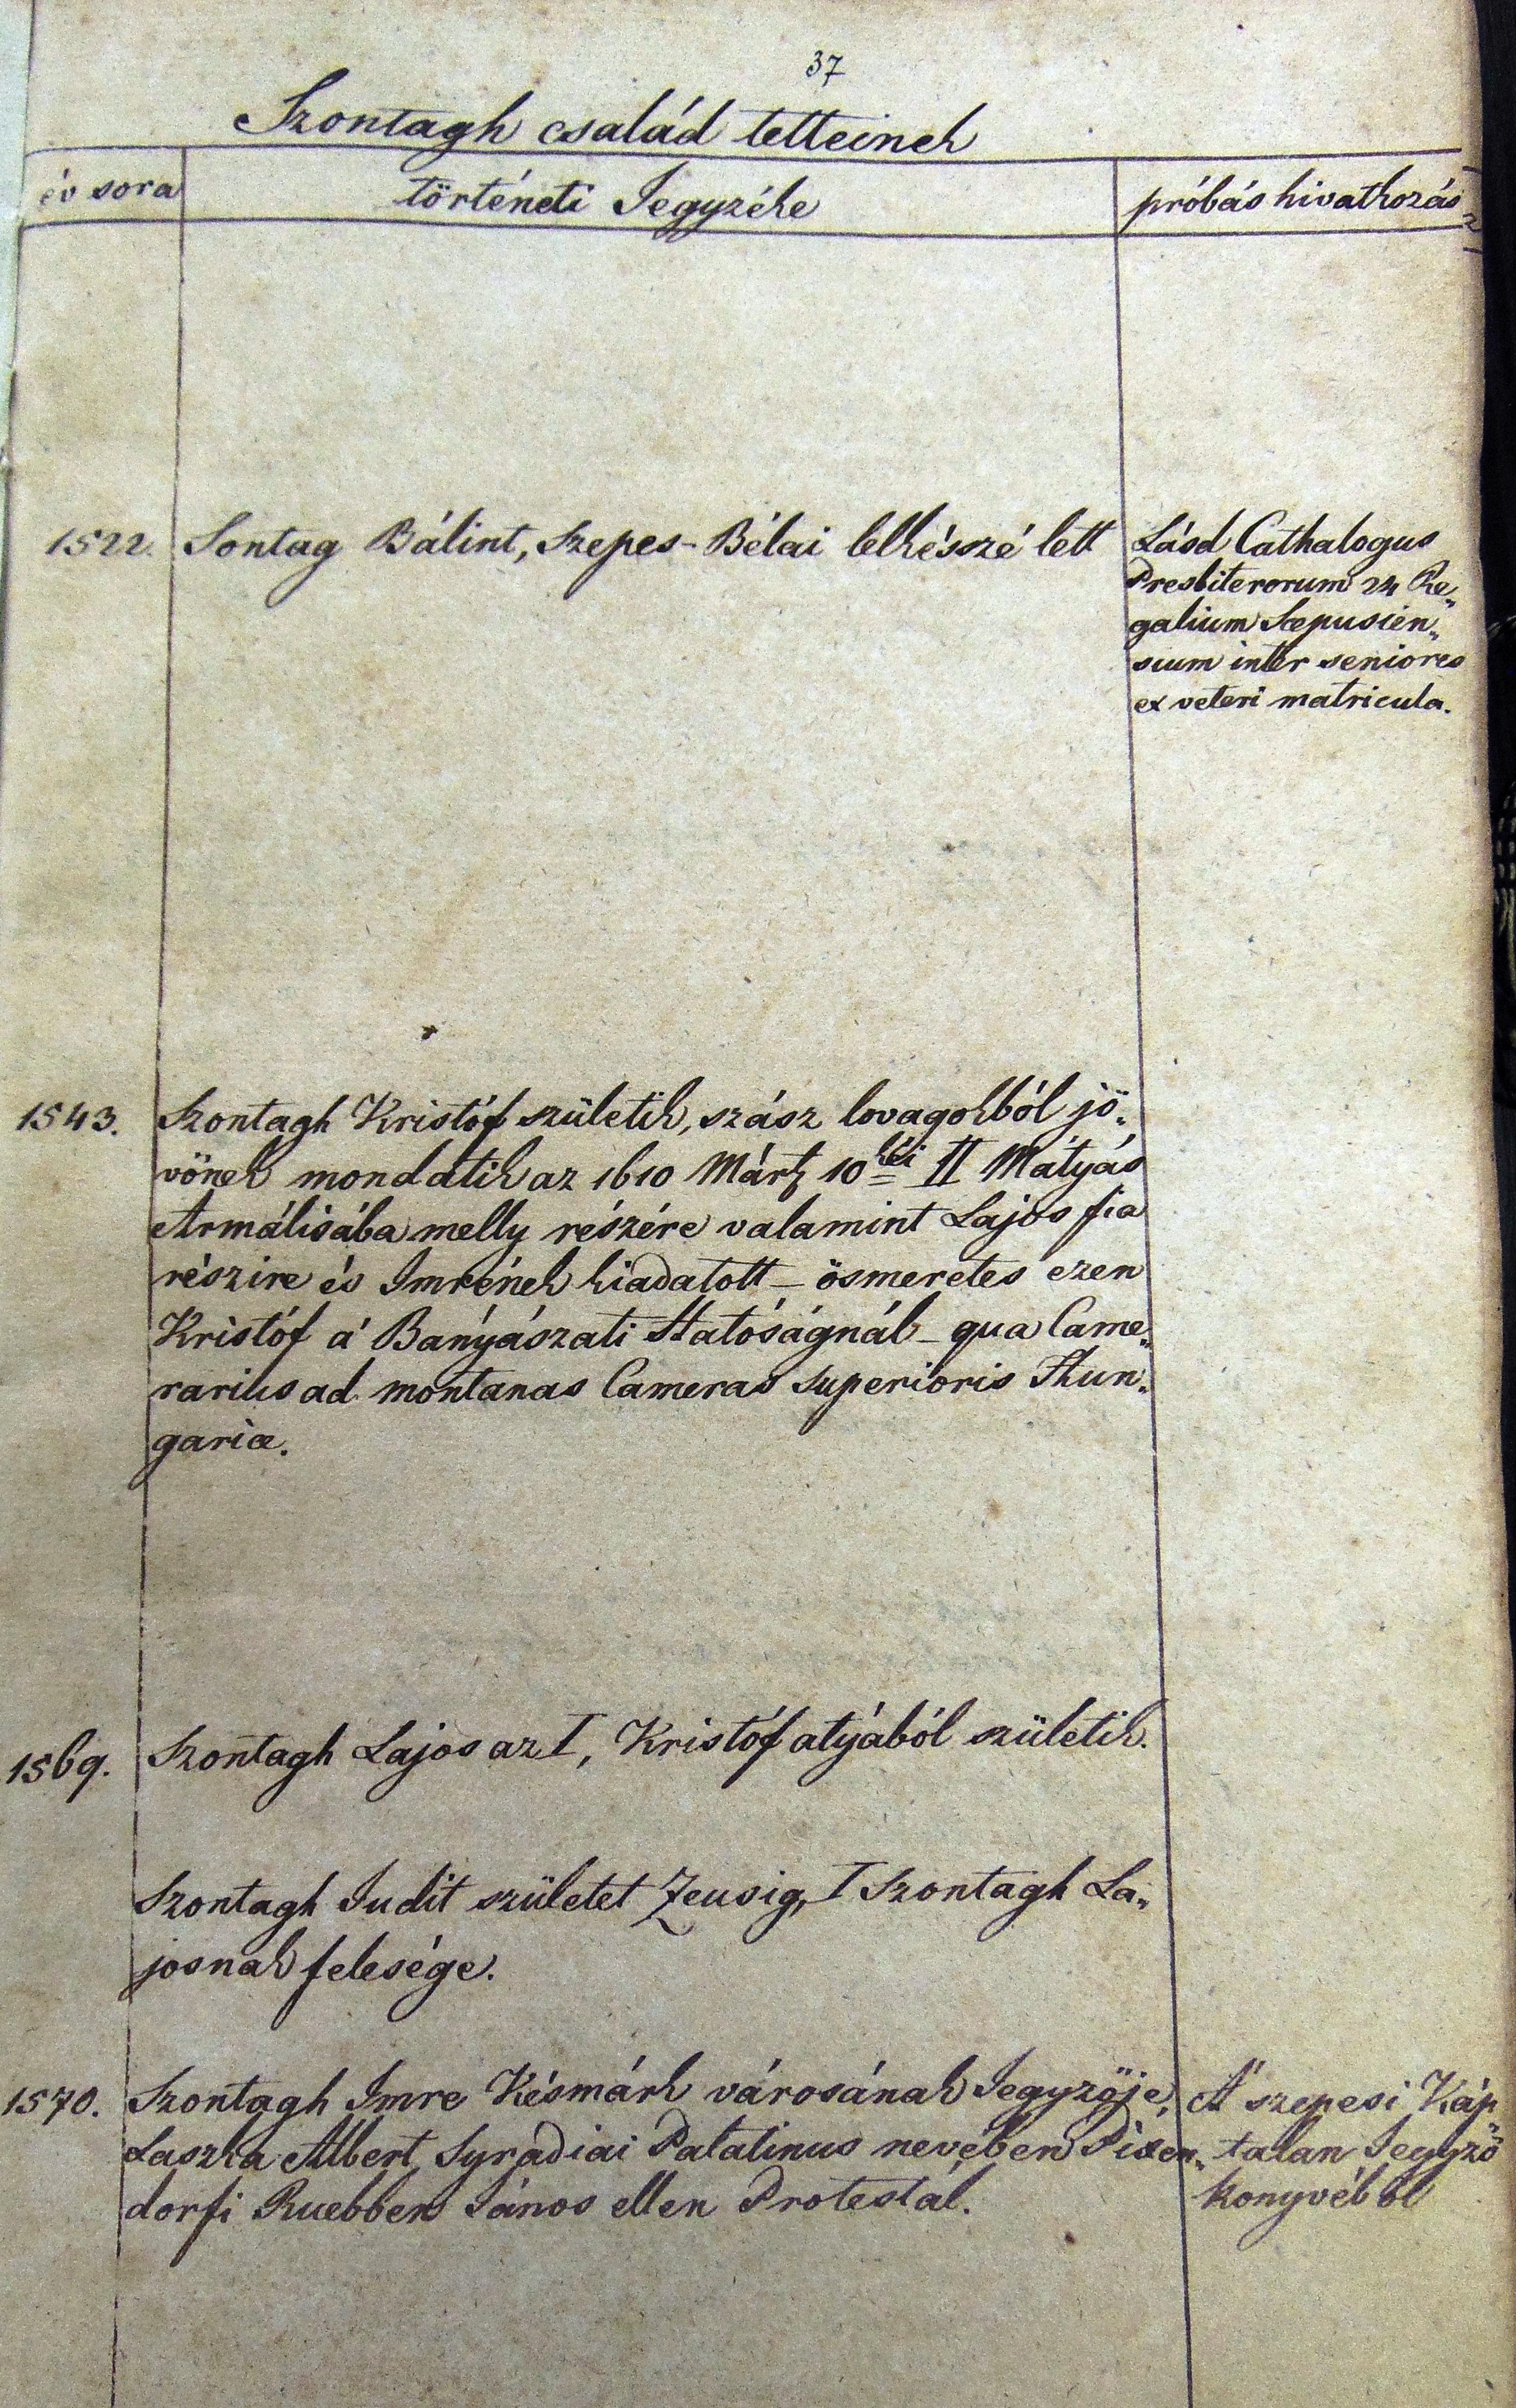 37
Szontagh család tetteinek
év sora
történeti Jegyzéke
próbás hivatkozás
1522.
Sontag Bálint, Szepes-Bélai lelkésszé lett
Lásd Cathalogus
Presbiterorum 24 Re„
galium Scepusien„
sium inter seniores
ex veteri matricula.
1543.
Szontagh Kristóf születik, szász lovagokból jö„
vönek mondatik az 1610 Mártz 10 kéi II Mátyás
Armálisába melly részére valamint Lajos fia
részire és Imrének kiadatott – ösmeretes ezen
Kristóf a' Bányászati Hatóságnál – qua Came„
rarius ad montanas Cameras superioris Hun„
gariæ.
1569.
Szontagh Lajos az I, Kristóf atyából születik.
Szontagh Judit született Zeusig, I Szontagh La„
josnak felesége.
1570.
Szontagh Imre Késmárk városának Jegyzöje,
Laszka Albert Syradiai Palatinus nevében Dixen„
dorfi Ruebber János ellen Protestál.
A' szepesi Káp„
talan Jegyzö
konyvéböl